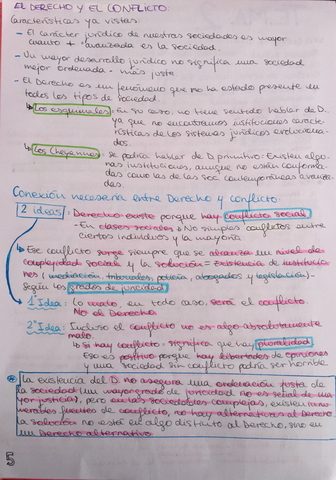 EL DERECHO Y EL CONFLICTO:
Características ya vistas:
- El carácter jurídico de nuestras sociedades es mayor
cuanto + avanzada es la sociedad.
- Un mayor desarrollo jurídico no significa una sociedad
mejor ordenada - más justa.
- El Derecho es un fenómeno que no ha estado presente en
todos los tipos de sociedad.
↳ Los esquimales: en su caso, no tiene sentido hablar de D.
ya que no encontramos instituciones caracte-
rísticas de los sistemas jurídicos evoluciona-
dos.
↳ Los Cheyennes: se podría hablar de D. primitivo: Existen algu-
nas instituciones, aunque no están conforma-
das como las de las soc. contemporáneas avanza-
das.
Conexión necesaria entre Derecho y conflicto:
2 ideas: - Derecho existe porque hay conflicto social
- En clases sociales → No simples conflictos entre
ciertos individuos y la mayoría
↳ Ese conflicto surge siempre que se alcanza un nivel de
complejidad social y la solución = existencia de institucio-
nes (mediación, tribunales, policía, abogados y legislación) -
Según los grados de juricidad
1ª Idea: Lo malo, en todo caso, será el conflicto.
No el Derecho
2ª Idea: Incluso el conflicto no es algo absolutamente
malo.
↳ Si hay conflicto: significa que hay pluralidad
Eso es positivo porque hay libertades de opiniones
y una sociedad sin conflicto podría ser horrible
* La existencia del D. no asegura una ordenación justa de
la sociedad (un mayor grado de juricidad no es señal de ma-
yor justicia), pero en las sociedades complejas, existen
fuentes de conflicto, no hay alternativas al Derecho
La solución no está en algo distinto al Derecho, sino en
un Derecho alternativo
5